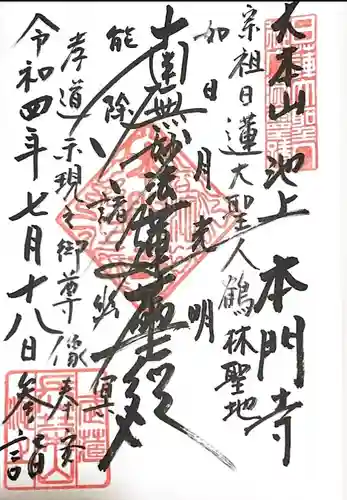 大本山池上 本門寺
宗祖日蓮大聖人鶴林聖地
如日月光明
南無妙法蓮華経
能除諸幽冥
孝道示現之御尊像奉安
令和四年七月十八日参詣